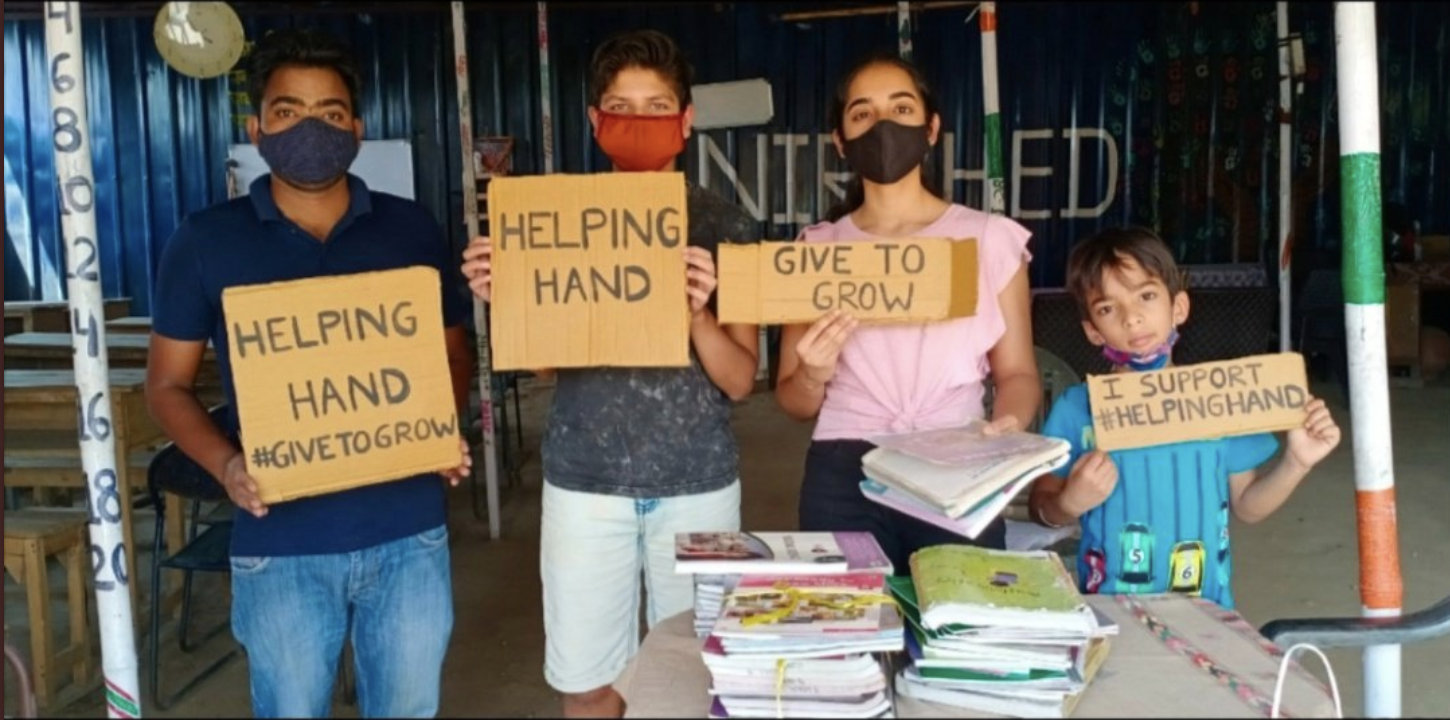 4
6
8
10
12
14
16
18
20
HELPING
HAND
#GIVETOGROW
HELPING
HAND
GIVE TO
GROW
I SUPPORT
#HELPINGHAND
5
6